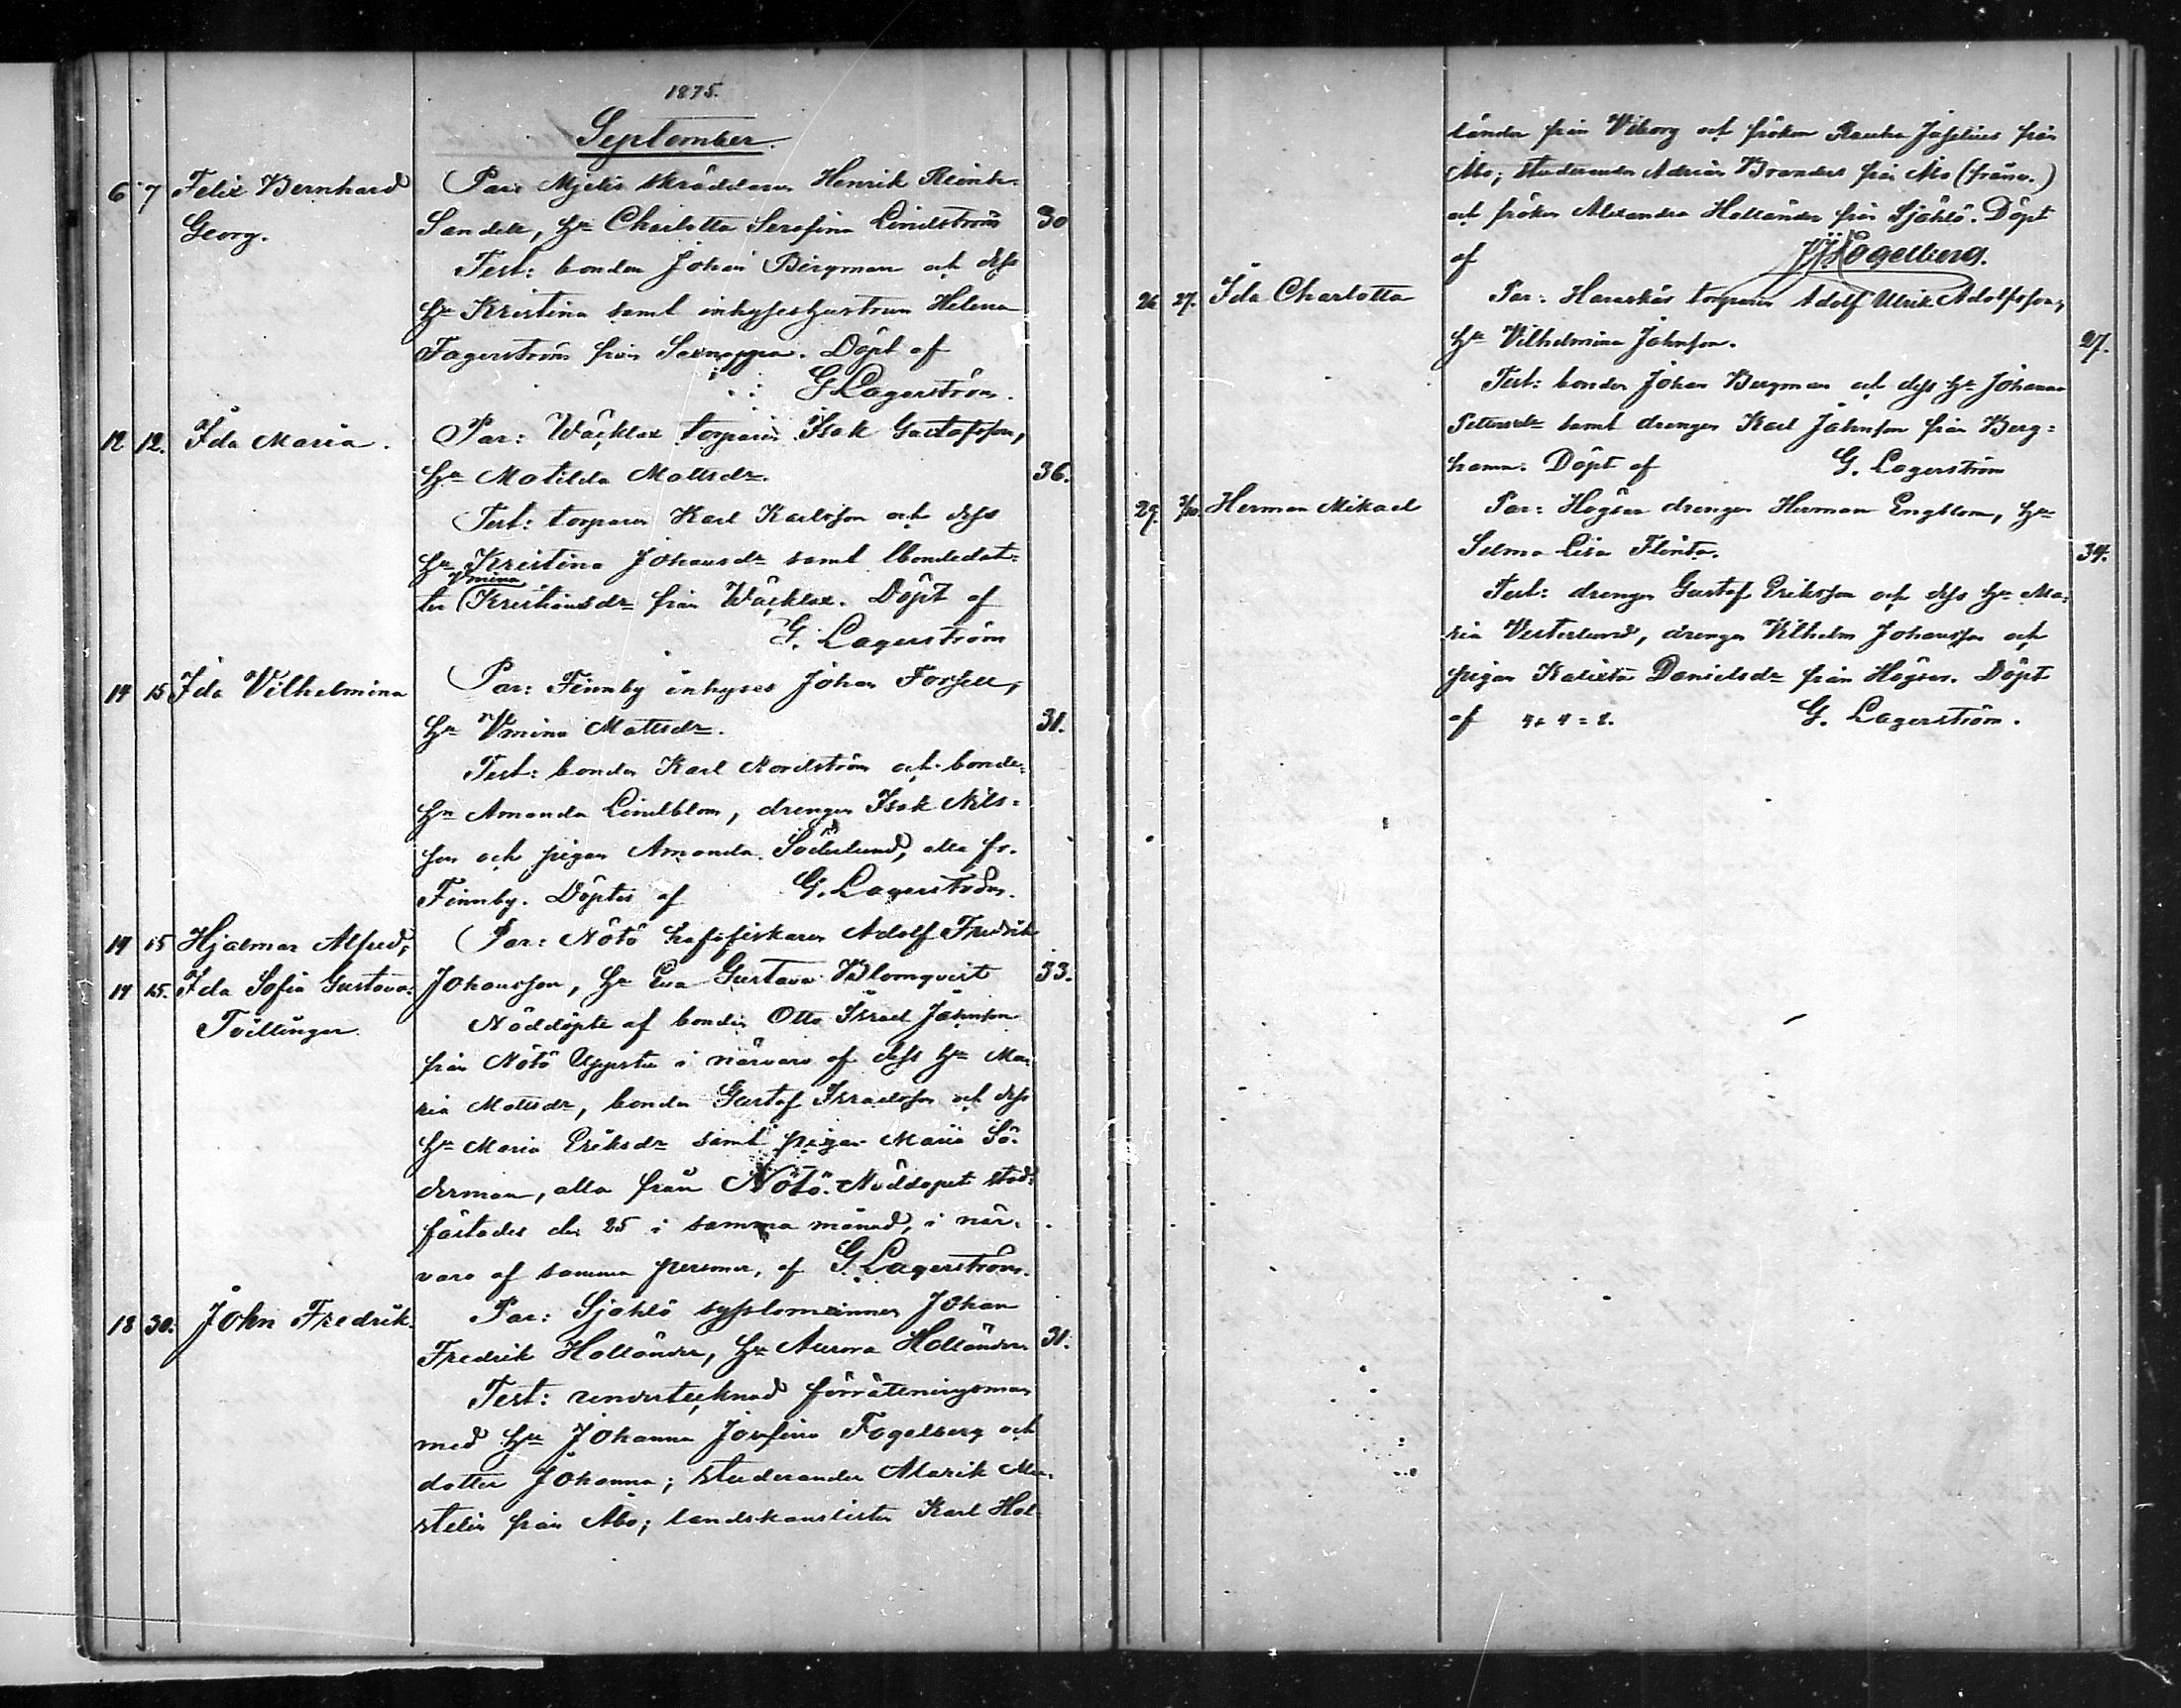 1875.
September.
6 7 Felix Bernhard Par: Mjelis skräddaren Henrik Reinh.
Georg. Sandell, Hu Charlotta Serafina Lindström 30
Test: bonden Johan Bergman och dess
Hu Kristina samt inhyseshustrun Helena
Fagerström från Saxnappa. Döpt af
G. Lagerström.
12. 12. Ida Maria. Par: Wäcklax torparen Isak Gustafsson,
Hu Matilda Mattsdr. 36.
Test: torparen Karl Karlsson och dess
Hu Kristina Johansdr samt bondedot-
Vmina
ter Kristiansdr från Wäcklax. Döpt af
G. Lagerström
14 15 Ida Vilhelmina Par: Finnby inhyses Johan Forsell,
Hu Vmina Mattsdr. 31.
Test: bonden Karl Nordström och bonde-
Hn Amanda Lindblom, drengen Isak Nils-
son och pigan Amanda Söderlund, alla fr.
Finnby. Döptes af G. Lagerström.
14 15 Hjalmar Alfred, Par: Nötö hafsfiskaren Adolf Fredrik
14 15. Ida Sofia Gustava. Johansson, Hu Eva Gustava Blomqvist 33.
Tvillingar. Nöddöpte af bonden Otto Israel Jahnsson
från Nötö Uppertu i närvaro af dess Hu Ma-
ria Mattsdr, bonden Gustaf Israelsson och dess
Hu Maria Eriksdr samt pigan Maria Sö-
derman, alla från Nötö. Nöddopet stad-
fästades den 25 i samma månad, i när-
varo af samma personer, af G. Lagerström.
18 30. John Fredrik. Par: Själö sysslomannen Johan
Fredrik Holländer, Hu Aurora Holländer 31.
Test: undertecknad förrättningsman
med Hu Johanna Josefina Fogelberg och
dotter Johanna; studeranden Alarik Me-
stelin från Åbo; landskanslisten Karl Hol-
länder från Viborg och fröken från
Åbo; studeranden Adrian Brander från Åbo (frånv.)
och fröken Alexandra Holländer från Själö. Döpt
af Fogelberg.
26 27. Ida Charlotta Par: Haraskär torparen Adolf Ulrik Adolfsson,
Hu Vilhelmina Jahnsson. 27.
Test: bonden Johan Bergman och dess Hu Johanna
samt drengen Karl Jahnsson från Berg-
hamn. Döpt af G. Lagerström
29. 3/10. Herman Mikael Par: Högsar drengen Herman Engblom, Hu
Selma Lisa Flinta. 34.
Test: drengen Gustaf Eriksson och dess Hu Ma-
ria Vesterlund, drengen Vilhelm Johansson och
pigan Kalixta Danielsdr från Högsar. Döpt
af 4+4=8. G. Lagerström.